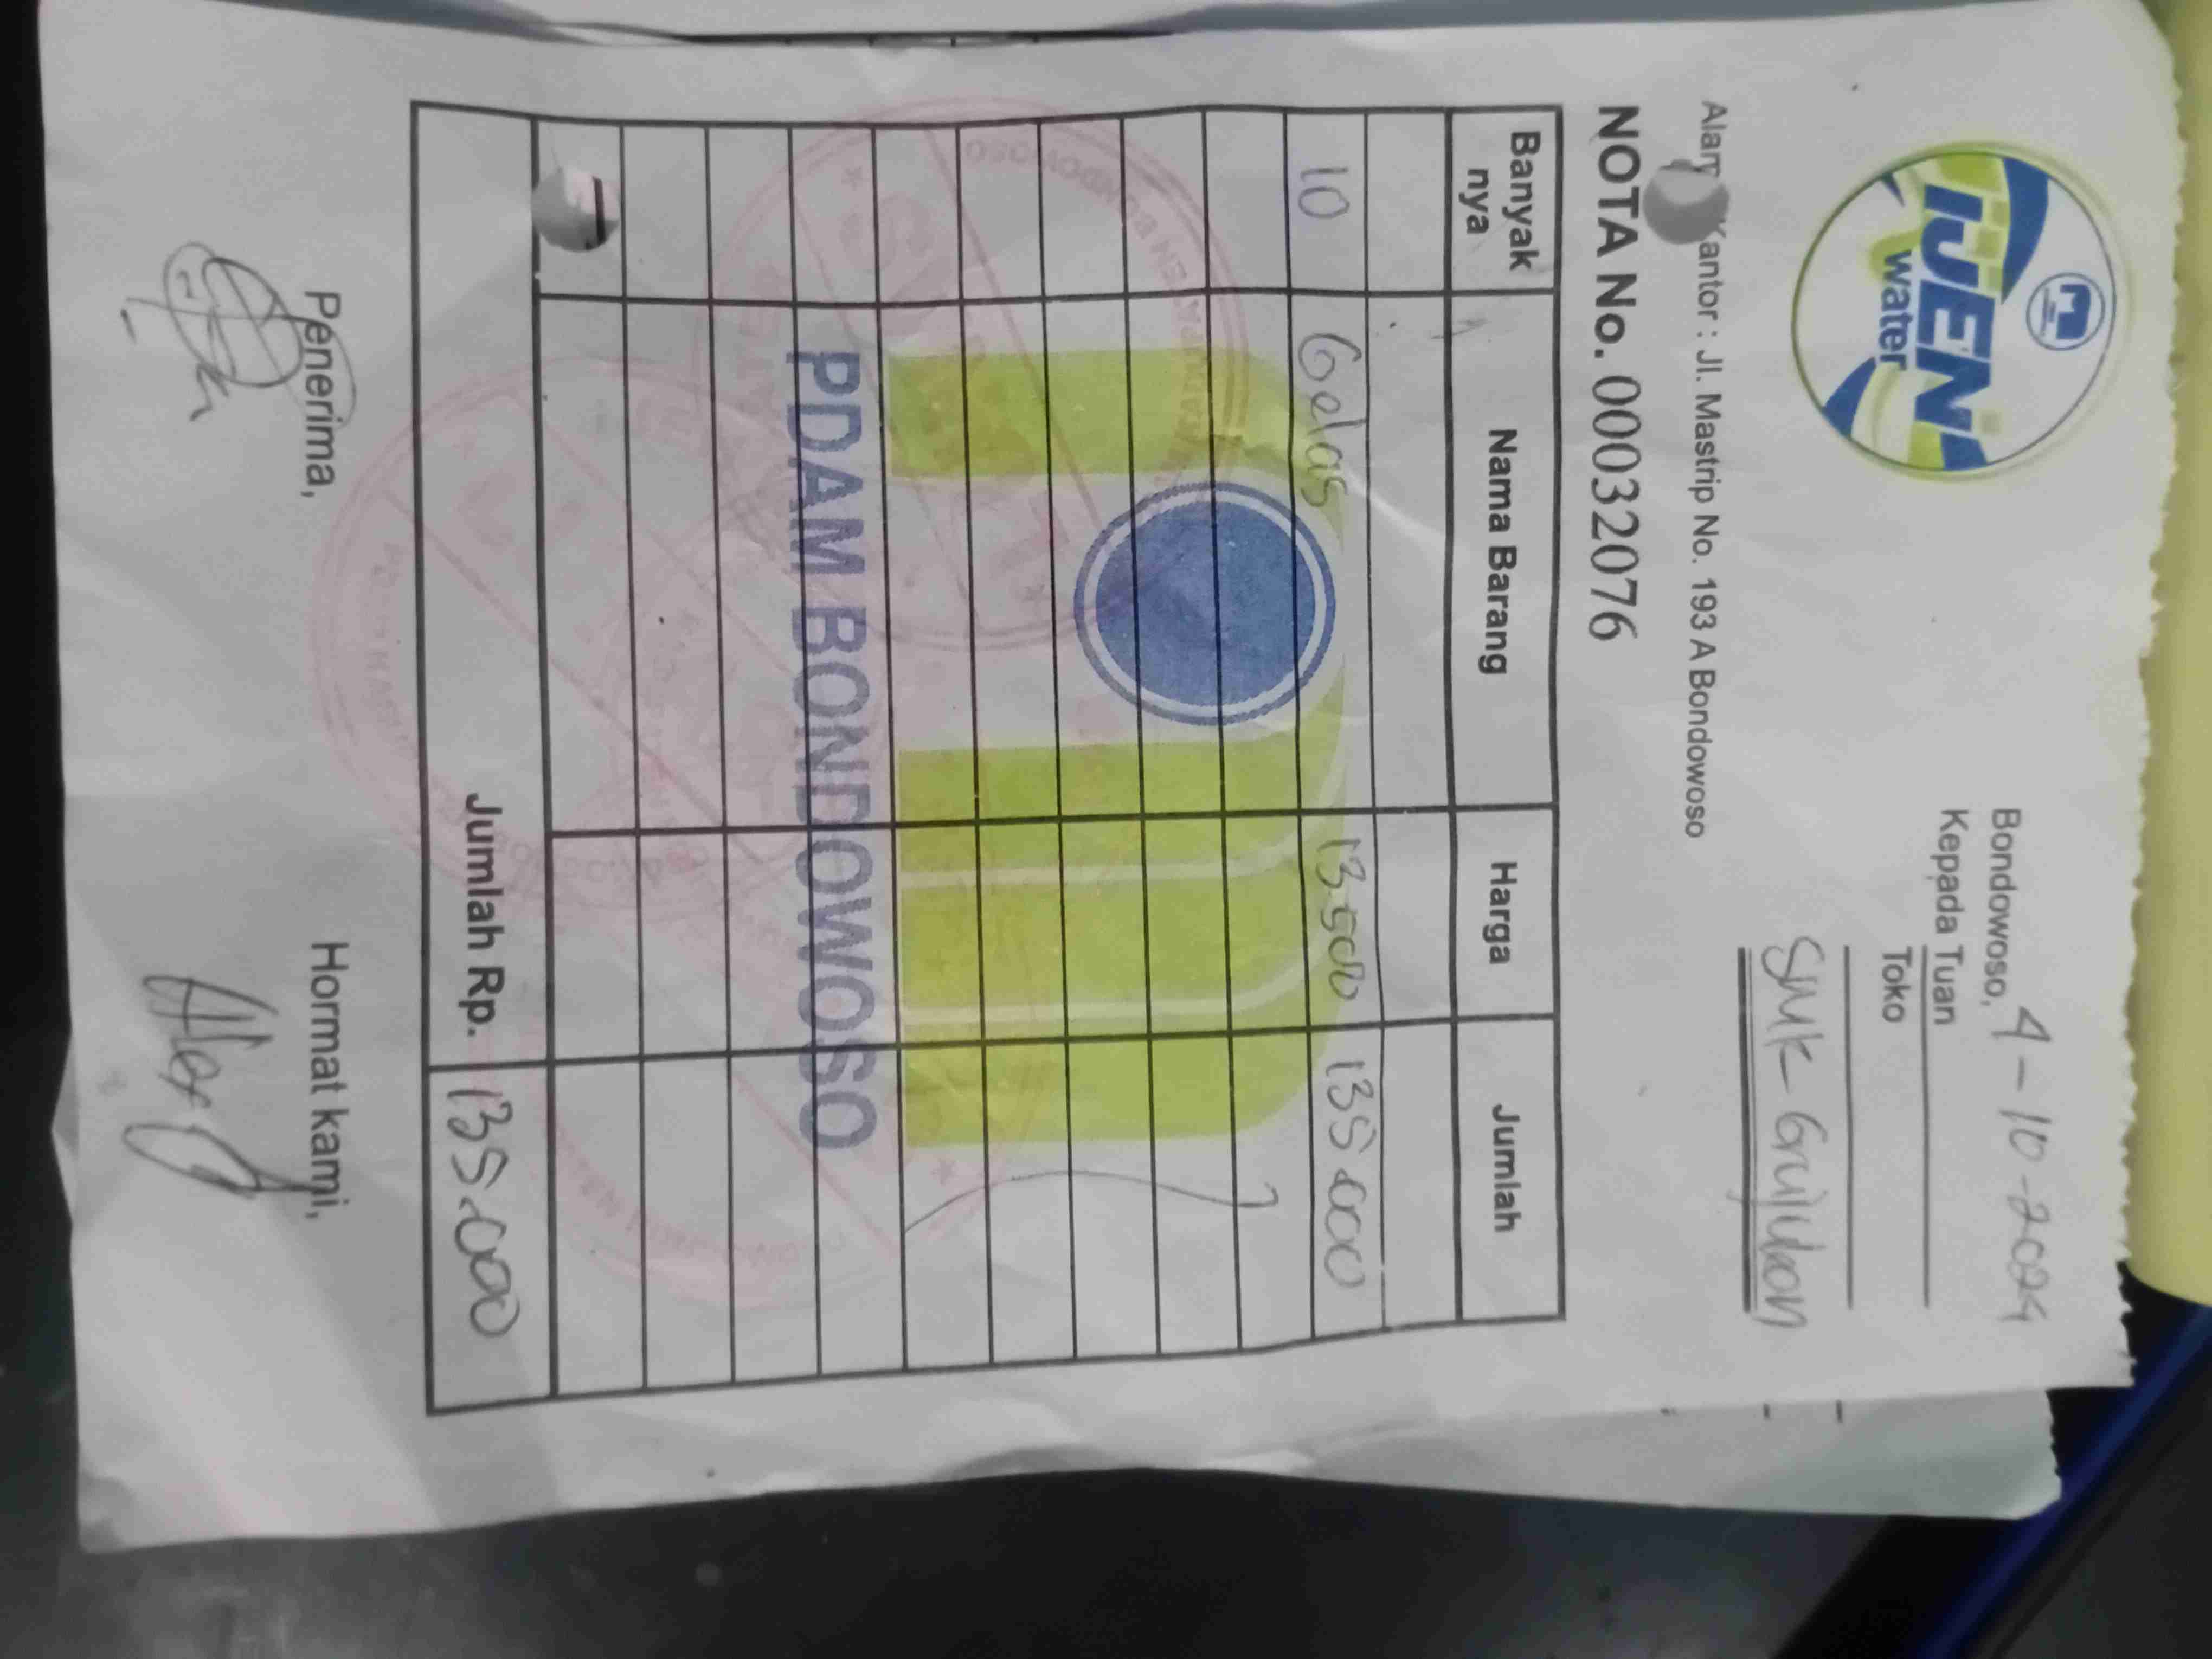 IJEN
water
Bondowoso, 4-10-2024
Kepada Tuan
Toko
SMK Grujugan
Alam Kantor : Jl. Mastrip No. 193 A Bondowoso
NOTA No. 00032076
Banyak nya Nama Barang Harga Jumlah
10 Gelas 13500 135.000
PDAM BONDOWOSO
Jumlah Rp. 135.000
Penerima, Hormat kami,